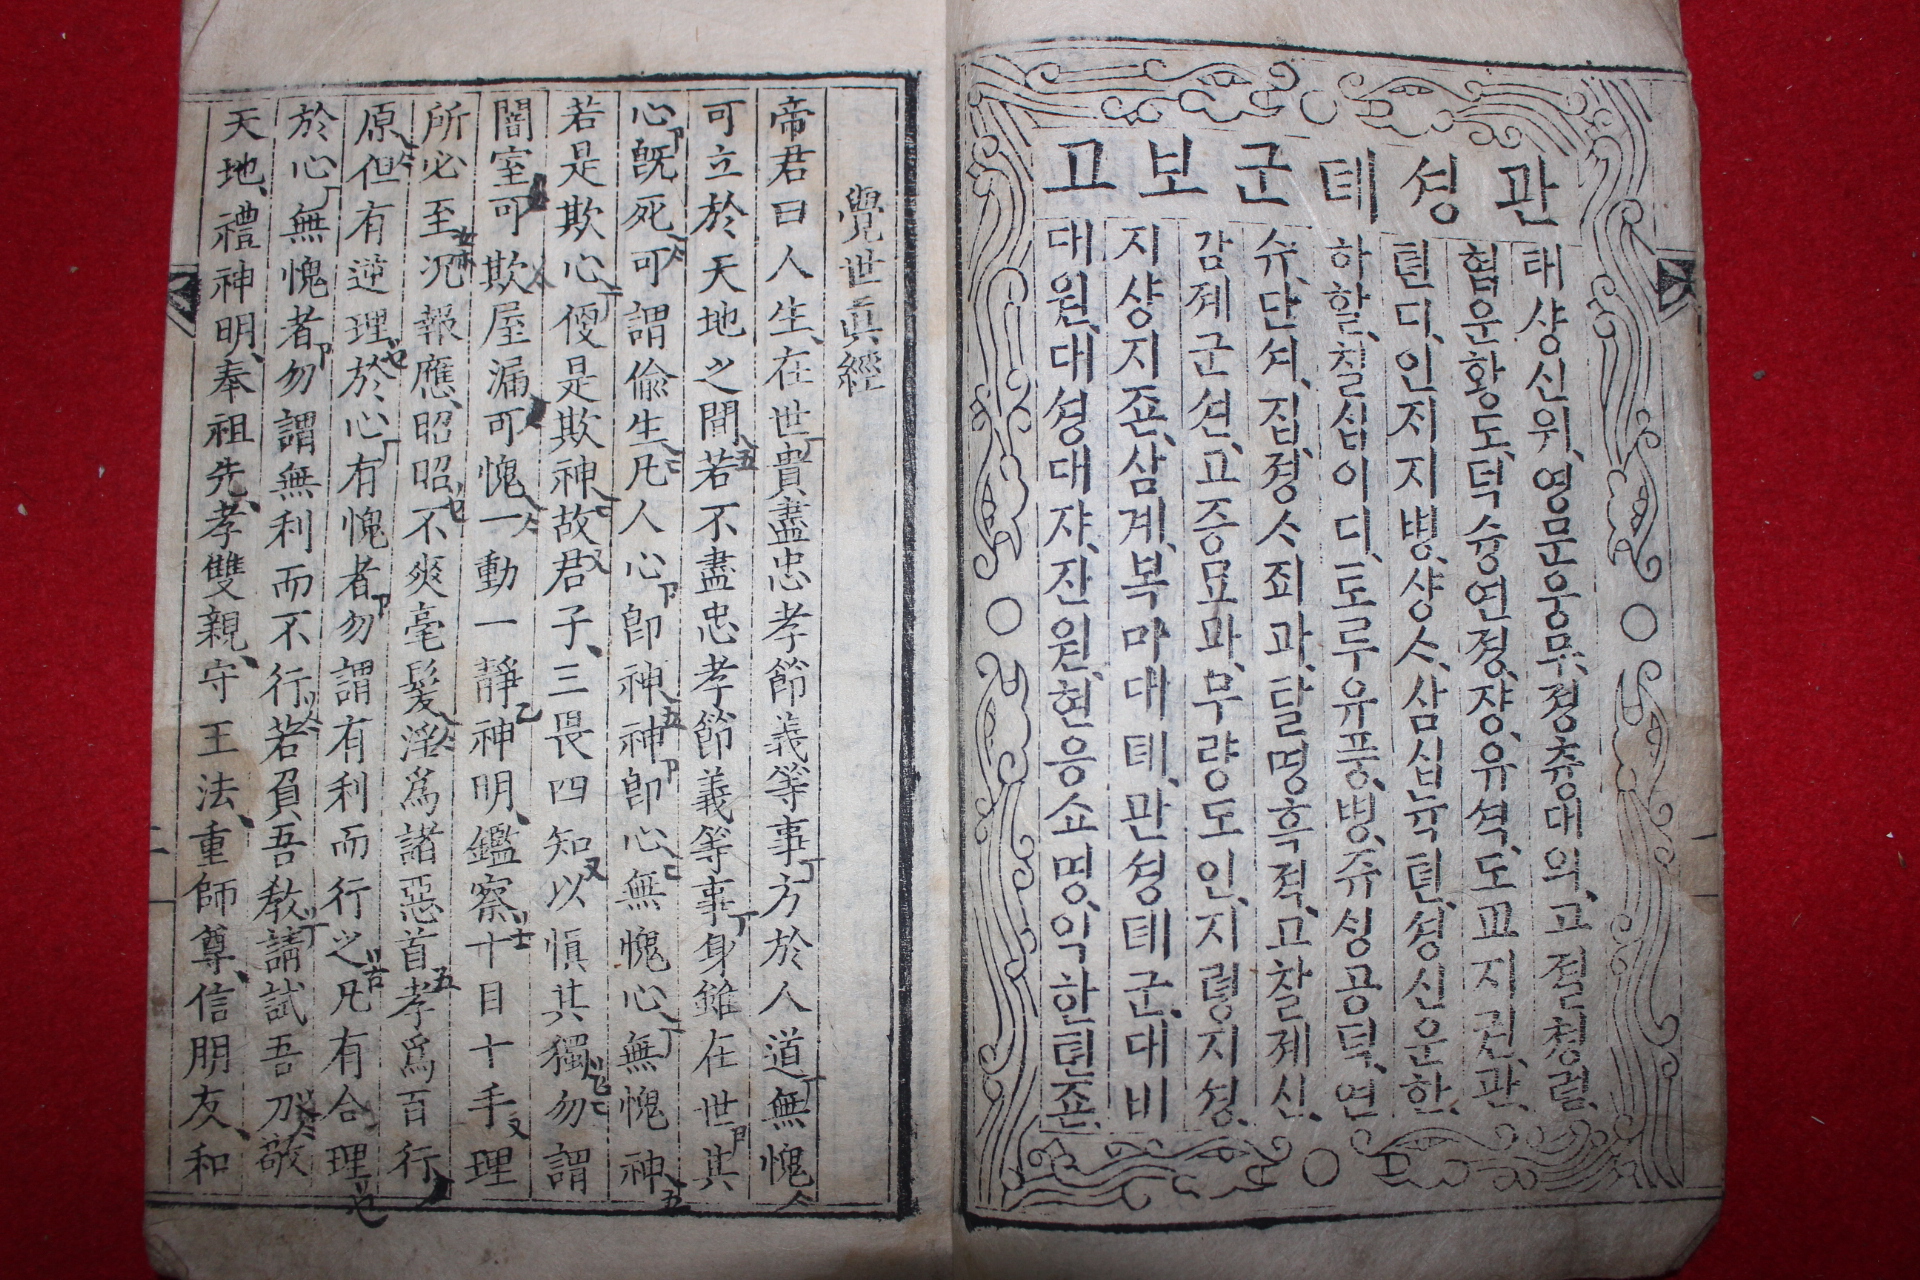 관셩톄군보고
태샹신위、영문웅무、졍츙대의、고졀쳥렴、
협운황도、덕슝연졍、쟝、유셕、도교지권、관、
텬디、인지지병、샹ᄉ、삼십뉵텬、셩신운한、
하할、칠십이디、토루유풍、병、쥬싱공덕、연
슈、단셔、집、졍ᄉ죄과、탈명흑젹、고찰졔신、
감졔군션、고증묘과、무량도인、지령지셩、
지샹지존、삼계、복마대톄、관셩톄군、대비
대원、대셩대쟈、잔원、현응쇼명、익한텬죤、
覺世眞經
帝君曰人生、在世貴盡忠孝節義等事方於人道無愧
可立於天地之間、若不盡忠孝節義等事身雖在世其
心旣死可謂偸生、凡人心卽神神卽心無愧心無愧神
若是欺心便是欺神故君子、三畏四知以愼其獨勿謂
闇室可欺屋漏可愧一動一靜神明、鑑察十目十手理
所必至况報應、昭昭不爽毫髮淫爲諸惡首孝爲百行
原但有逆理於心有愧者勿謂有利而行之凡有合理
於心無愧者勿謂無利而不行若負吾敎請試吾刀敬
天地、禮神明、奉祖先、孝雙親、守王法、重師尊、信朋友、和